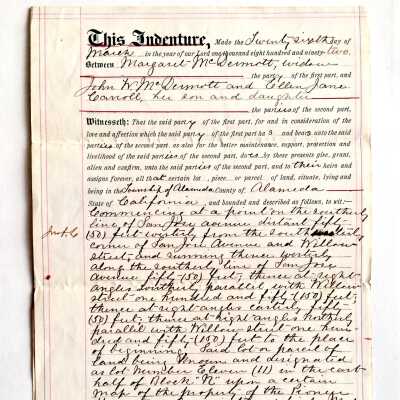 This Indenture, Made the Twenty sixth day of
March in the year of our Lord one thousand eight hundred and ninety-two,
Between Margaret McDermott, widow
the party of the first part, and
John W McDermott and Ellen Jane
Carroll, her son and daughter
the parties of the second part.
Witnesseth: That the said party of the first part, for and in consideration of the
love and affection which the said party of the first part has and bears unto the said
parties of the second part, as also for the better maintenance, support, protection and
livelihood of the said parties of the second part, does, by these presents give, grant,
alien and confirm, unto the said parties of the second part, and to their heirs and
assigns forever, all that certain lot, piece or parcel of land, situate, lying and
being in the Township of Alameda County of Alameda
State of California, and bounded and described as follows, to wit:
Commencing at a point on the southerly
line of San Jose Avenue distant fifty
(50) feet westerly from the southwesterly
corner of San Jose Avenue and Willow
street; and running thence westerly
along the southerly line of San Jose
Avenue fifty (50) feet; thence at right
angles southerly parallel with Willow
street one hundred and fifty (150) feet;
thence at right angles easterly fifty
(50) feet; thence at right angles northerly
parallel with Willow street one hun-
dred and fifty (150) feet to the place
of beginning. Said lot or parcel of
land being known and designated
as lot number Eleven (11) in the east
half of Block "N" upon a certain
Map of the property of the